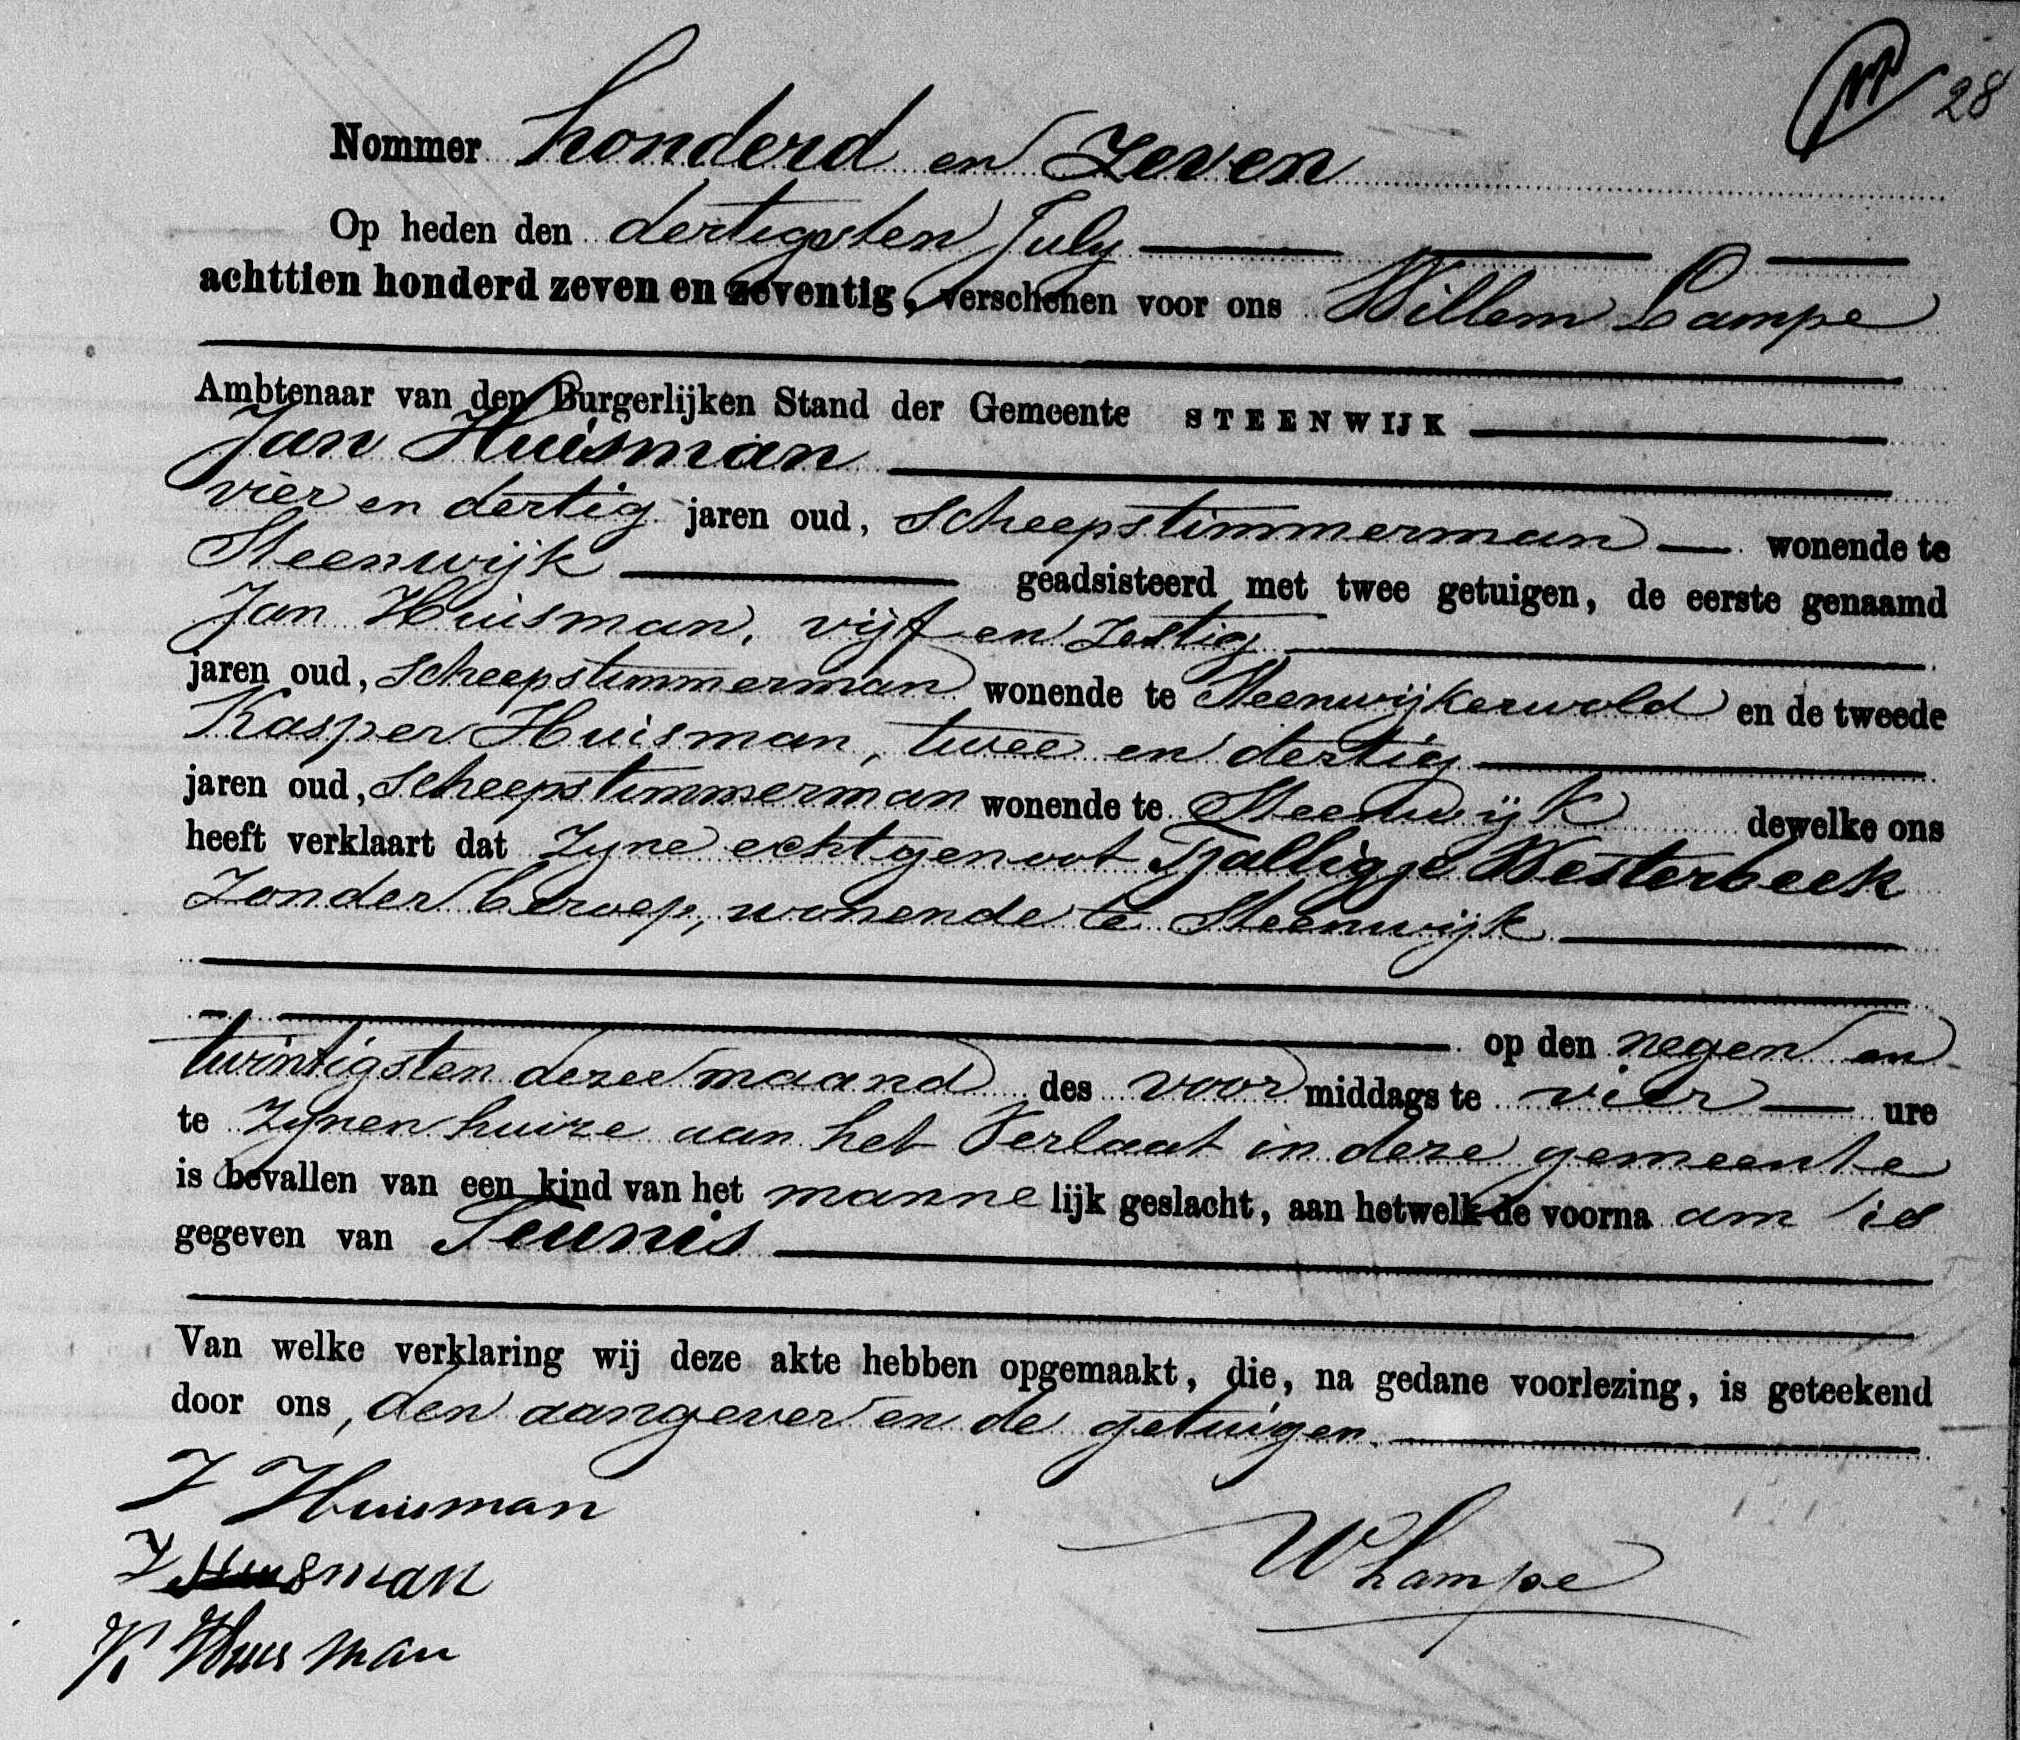 28
Nommer honderd en zeven
Op heden den dertigsten July
achttien honderd zeven en zeventig, verschenen voor ons Willem Lampe
Ambtenaar van den Burgerlijken Stand der Gemeente STEENWIJK
Jan Huisman
vier en dertig jaren oud, scheepstimmerman wonende te
Steenwijk geadsisteerd met twee getuigen, de eerste genaamd
Jan Huisman, vijf en zestig
jaren oud, scheepstimmerman wonende te Steenwijkerwold en de tweede
Kasper Huisman, twee en dertig
jaren oud, scheepstimmerman wonende te Steenwijk dewelke ons
heeft verklaart dat zyne echtgenoot Tjalligje Westerbeek
zonder beroep, wonende te Steenwijk
op den negen en
twintigsten dezer maand des voor middags te vier ure
te zynen huize aan het Verlaat in deze gemeente
is bevallen van een kind van het manne lijk geslacht, aan hetwelk de voorna am is
gegeven van Teunis
Van welke verklaring wij deze akte hebben opgemaakt, die, na gedane voorlezing, is geteekend
door ons, den aangever en de getuigen.
J Huisman
J Huisman
K Huisman
W Lampe